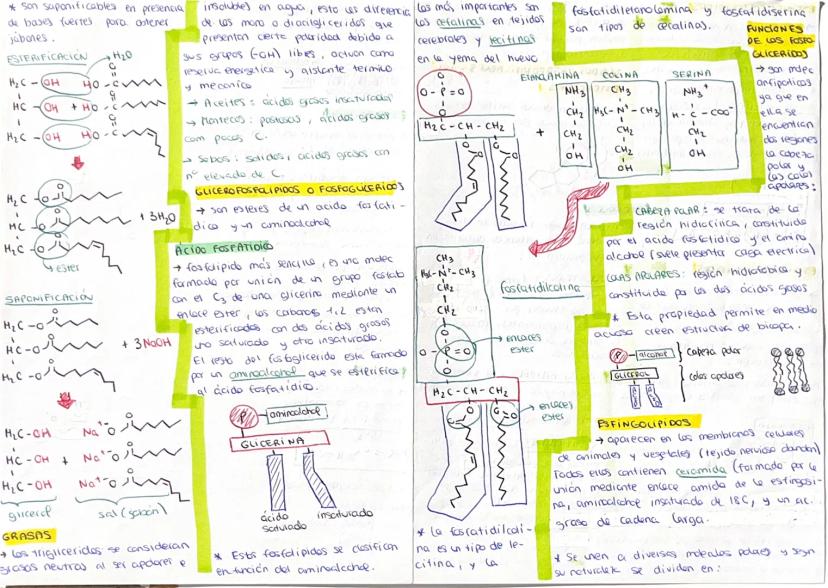 * son saponificables en presencia
de bases fuertes para obtener
jabones.
ESTERIFICACIÓN
H₂O
H₂C - OH HO - C
HC - OH + HO - C
H₂C - OH HO - C
O
H₂C - O
HC - O + 3H₂O
H₂C - O
ester
SAPONIFICACIÓN
H₂C - O
HC - O + 3 NaOH
H₂C - O
H₂C - OH Na⁺⁻O
HC - OH + Na⁺⁻O
H₂C - OH Na⁺⁻O
glicerol sal (jabón)
GRASAS
→ los triglicéridos se consideran
grasas neutras al ser apolares e
insolubles en agua, esto los diferencia
de los mono o diacilgliceridos que
presentan cierta polaridad debido a
sus grupos (-OH) libres, actuan como
reserva energetica y aislante termico
y mecanico
→ Aceites: ácidos grasos insaturados
→ Mantecas: pastosas, ácidos grasos
con pocos C.
→ Sebos: solidos, acidos grasos con
nº elevado de C.
GLICEROFOSFOLIPIDOS O FOSFOGLICERIDOS
→ son esteres de un acido fosfati-
dico y un aminoalcohol
ÁCIDO FOSFATÍDICO
→ fosfolipido más sencillo, es una molec
formada por unión de un grupo fosfato
con el C₃ de una glicerina mediante un
enlace ester, los carbonos 1,2 estan
esterificados con dos ácidos grasos
uno saturado y otro insaturado.
El resto del fosfoglicerido esta formado
por un aminoalcohol que se esterifica
al ácido fosfatídico.
P - aminoalcohol
GLICERINA
ácido
saturado
insaturado
* Estos fosfolipidos se clasifican
en función del aminoalcohol.
los más importantes son
las cefalinas en tejidos
cerebrales y lecitinas
en la yema del huevo
O
O - P = O
O
H₂C - CH - CH₂
+
ETANOLAMINA
NH₃
CH₂
CH₂
OH
COLINA
CH₃
H₃C - N⁺ - CH₃
CH₂
CH₂
OH
SERINA
NH₃⁺
H - C - COO⁻
CH₂
OH
CH₃
H₃C - N⁺ - CH₃
CH₂
CH₂
O
O - P = O
O
H₂C - CH - CH₂
fosfatidilcolina
enlaces
ester
enlaces
ester
* La fosfatidilcoli-
na es un tipo de le-
citina, y la
fosfatidiletanolamina y fosfatidilserina
son tipos de cefalinas.
FUNCIONES
DE LOS FOSFO
GLICERIDOS
→ son molec
anfipaticas
ya que en
ella se
encuentran
dos regiones
la cabeza
polar y
las colas
apolares:
CABEZA POLAR: se trata de la
región hidrofílica, constituida
por el acido fosfatidico y el amino
alcohol (suele presentar carga electrica)
COLAS APOLARES: región hidrofobica y
constituida por los dos ácidos grasos
* Esta propiedad permite en medio
acuoso creen estructura de bicapa.
P - alcohol
GLICEROL
cabeza polar
colas apolares
ESFINGOLIPIDOS
→ aparecen en las membranas celulares
de animales y vegetales (tejido nervioso abundan)
Todos ellos contienen ceramida (formado por la
unión mediante enlace amida de la esfingosi-
na, aminoalcohol insaturado de 18C, y un ac.
graso de cadena larga.
* Se unen a diversas moleculas polares y según
su naturaleza se dividen en: